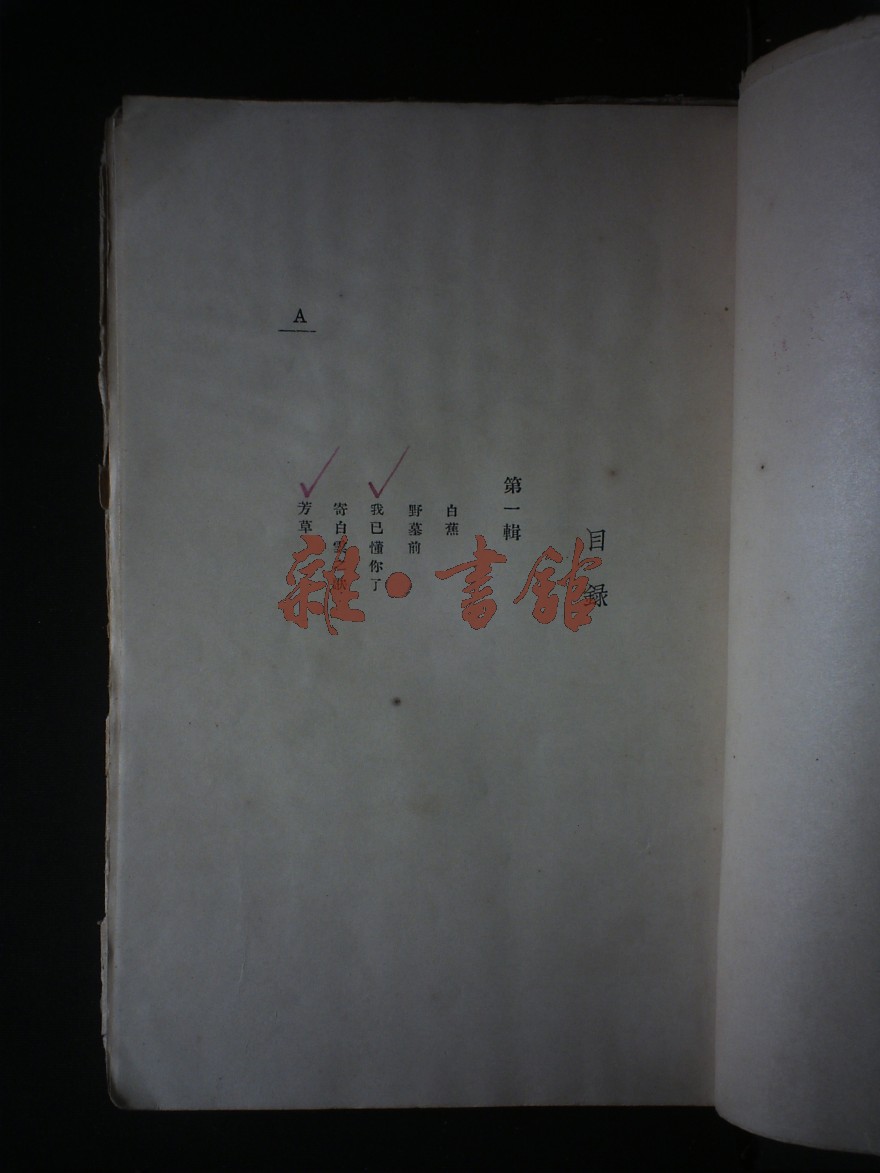 目錄
第一輯
白蕉
野墓前
我已懂你了
寄白雲
芳草
A
雜·書館